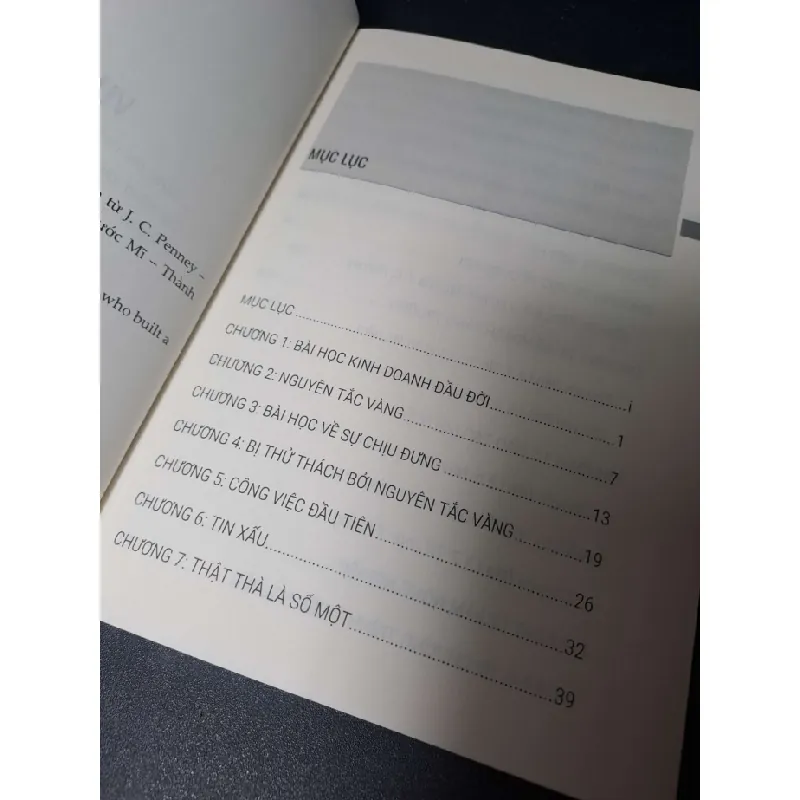 từ J. C. Penney –
ước Mĩ – Thành
who built a
MỤC LỤC
MỤC LỤC....................i
CHƯƠNG 1: BÀI HỌC KINH DOANH ĐẦU ĐỜI....................1
CHƯƠNG 2: NGUYÊN TẮC VÀNG....................7
CHƯƠNG 3: BÀI HỌC VỀ SỰ CHỊU ĐỰNG....................13
CHƯƠNG 4: BỊ THỬ THÁCH BỞI NGUYÊN TẮC VÀNG....................19
CHƯƠNG 5: CÔNG VIỆC ĐẦU TIÊN....................26
CHƯƠNG 6: TIN XẤU....................32
CHƯƠNG 7: THẬT THÀ LÀ SỐ MỘT....................39